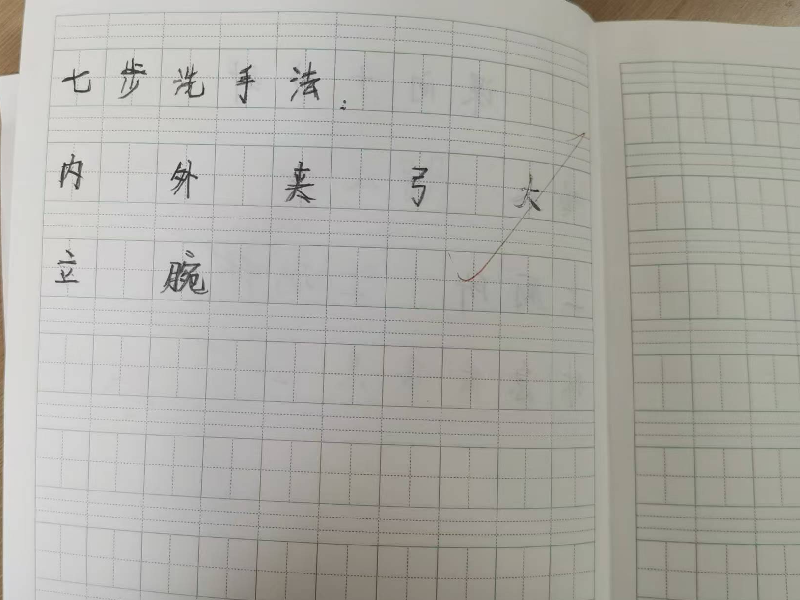 七步洗手法:
内 外 夹 弓 大
立 腕